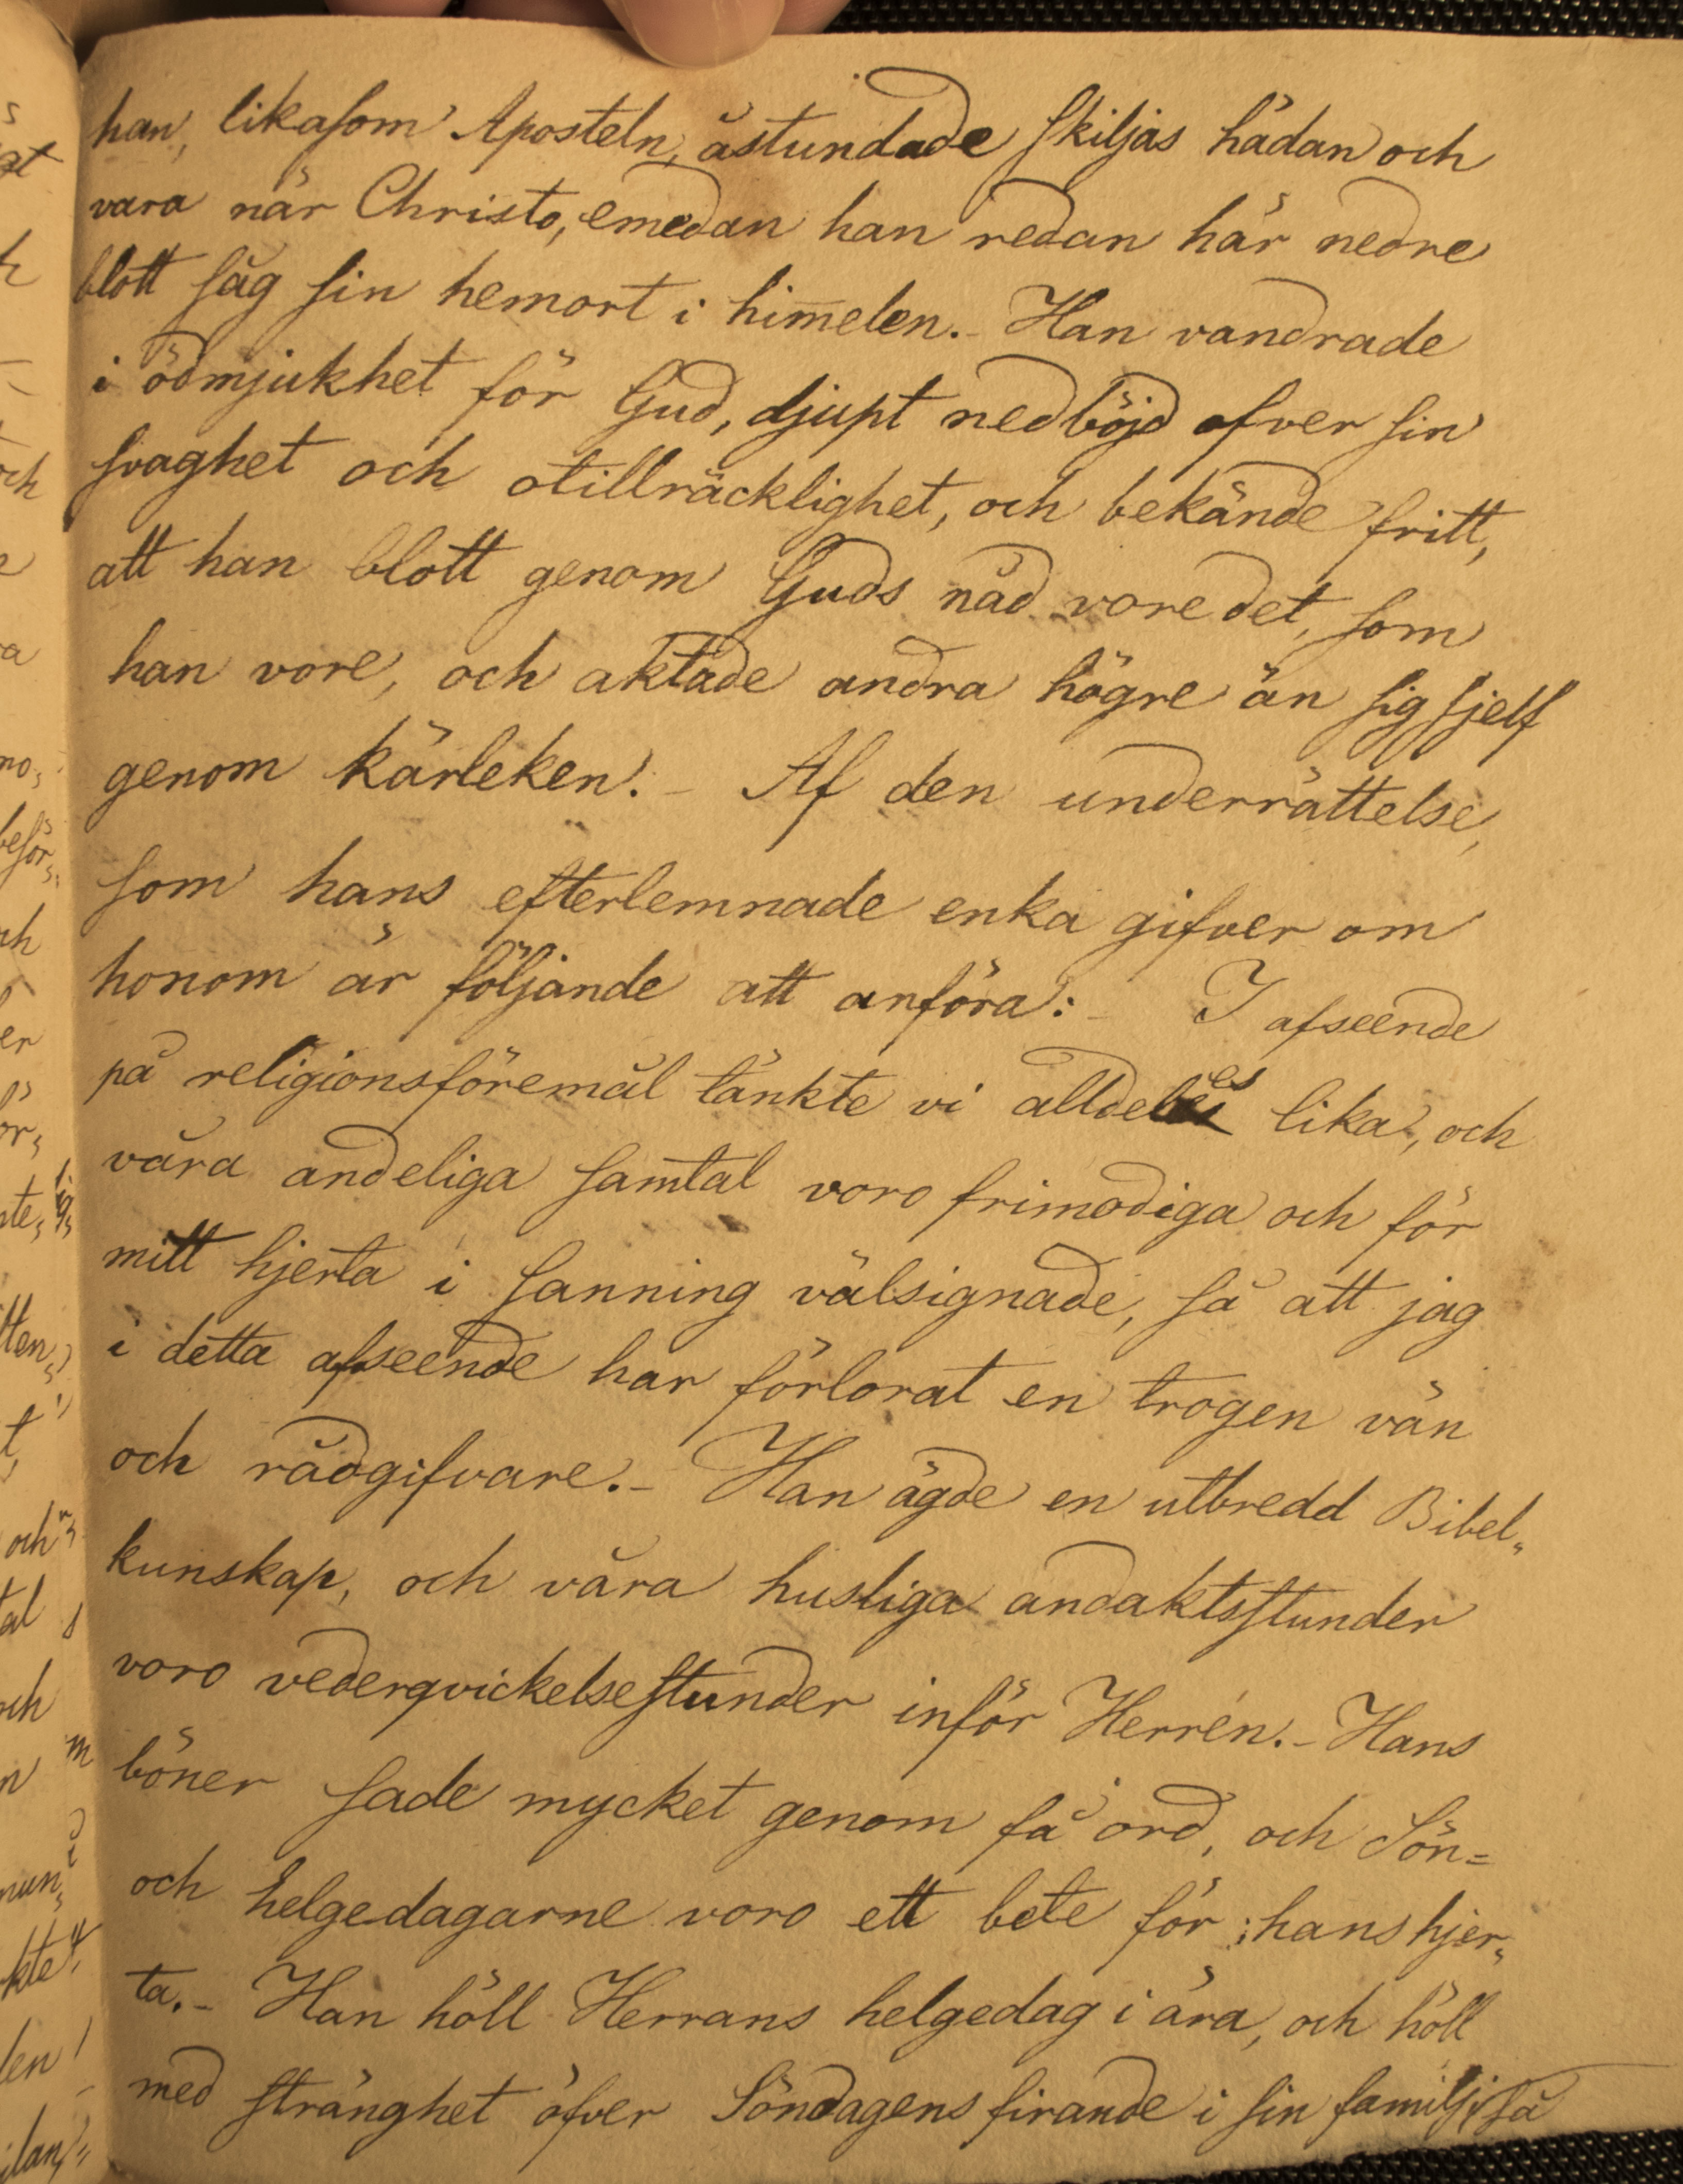 han, likasom Aposteln, åstundade skiljas hädan och
vara når Christo, emedan han redan här nedre
blott såg sin hemort i him̅elen. – Han vandrade
i ödmjukhet för Gud, djupt nedböjd ofver sin
svaghet och otillräcklighet, och bekände fritt,
att han blott genom Guds nåd vore det, som
han vore, och aktade andra högre än sig sjelf
genom kärleken. – Af den underrättelse,
som hans efterlemnade enka gifver om
honom är följande att anföra: – I afseende
på religionsföremål tänkte vi alldeles lika, och
våra andeliga sam̅tal voro frimodiga och för
mitt hjerta i sanning välsignade, så att jag
i detta afseende har förlorat en trogen vän
och rådgifvare. – Han ägde en utbredd Bibel„
kunskap, och våra husliga andaktsstunder
voro vederqvickelsestunder inför Herren. – Hans
böner sade mycket genom få ord, och Sön=
och helgedagarne voro ett bete för hans hjer„
ta. – Han höll Herrans helgedag i ära, och höll
med stränghet öfver Söndagens firande i sin familj, så